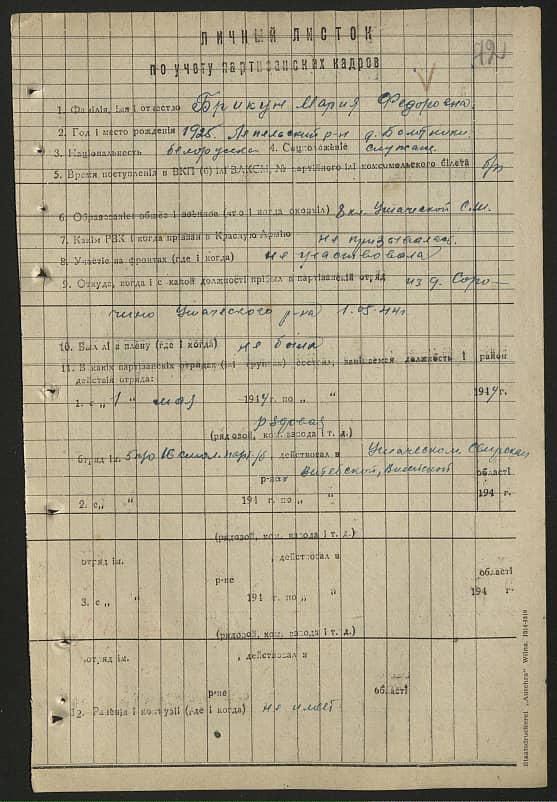 ЛИЧНЫЙ ЛИСТОК
по учету партизанских кадров
1. Фамілія, імя і отчество Брикун Мария Федоровна
2. Год і место рождения 1925 Лепельский р-н д.
3. Національность белорусска 4. Соцположение служащ.
5. Время поступления в ВКП (б) ілі ВЛКСМ, № партійного ілі комсомольского білета б/п
6. Образованіе: общее і военное (что і когда окончіл) 8 кл. Ушачской С.Ш.
7. Какім РВК і когда прізван в Красную Армію не призывалась.
8. Участіе на фронтах (где і когда) не участвовала
9. Откуда, когда і с какой должності прібыл в партізанскій отряд из д. Соро-
чино Ушачского р-на 1.05.44г.
10. Был лі в плену (где і когда) не была
11. В какіх партізанскіх отрядах (ілі группах) состоял, занімаемая должность і район
действія отряда:
1. с „ 1 " мая 1944 г. по „ " 1944 г.
рядовая
(рядовой, ком. взвода і т. д.)
отряд ім. 5 16 смол. парт. , действовал в Ушачском
р-нах Витебской, области
2. с „ " 194 г. по „ " 194 г.
(рядовой, ком. взвода і т. д.)
отряд ім. , действовал в
р-не області
3. с „ " 194 г. по „ " 194 г.
(рядовой, ком. взвода і т. д.)
отряд ім. , действовал в
р-не області
12. Раненія і контузіі (где і когда) не имеет
Staatsdruckerei „Aušchra" Wilna. 1914-1919